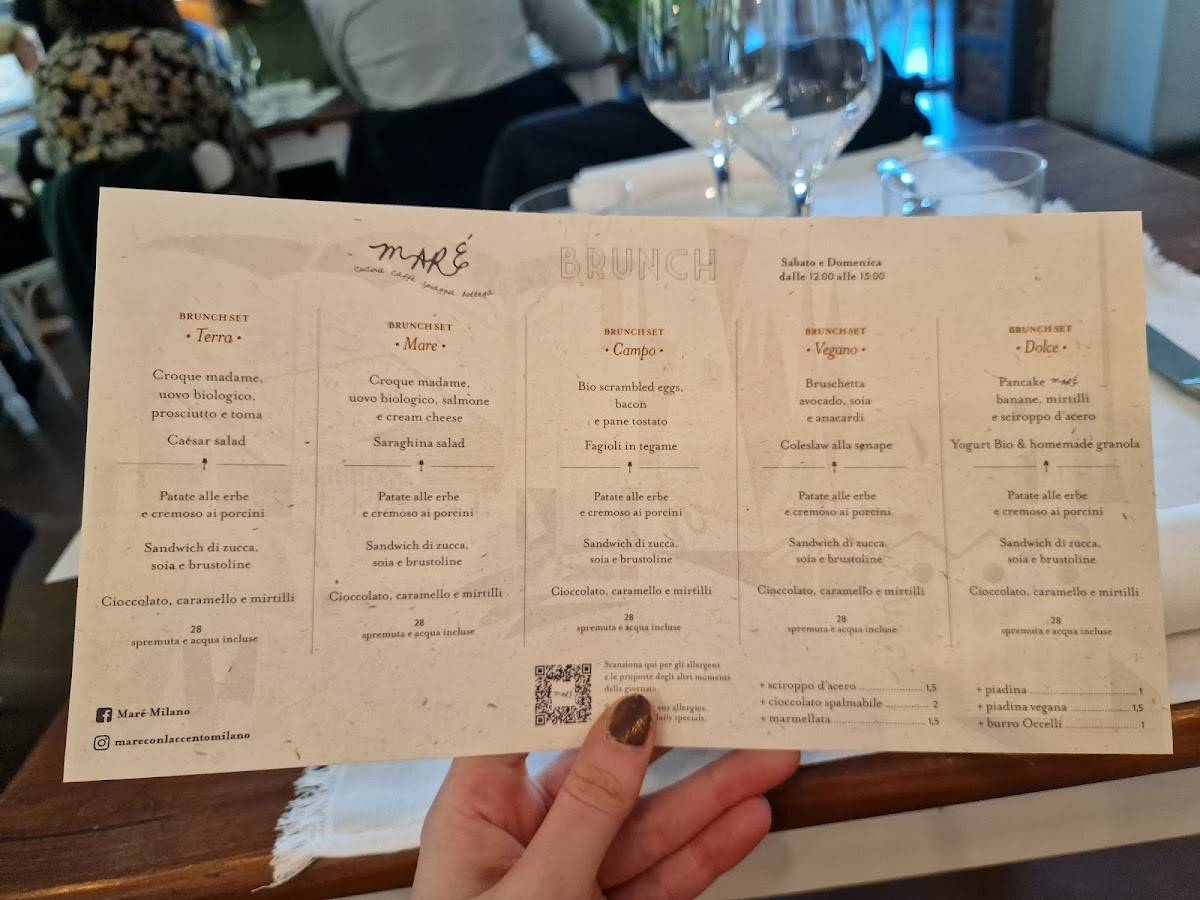 MARÉ
cucina caffè spiaggia bottega
BRUNCH
Sabato e Domenica
dalle 12:00 alle 15:00
BRUNCH SET
• Terra •
Croque madame,
uovo biologico,
prosciutto e toma
Caesar salad
Patate alle erbe
e cremoso ai porcini
Sandwich di zucca,
soia e brustoline
Cioccolato, caramello e mirtilli
28
spremuta e acqua incluse
BRUNCH SET
• Mare •
Croque madame,
uovo biologico, salmone
e cream cheese
Saraghina salad
Patate alle erbe
e cremoso ai porcini
Sandwich di zucca,
soia e brustoline
Cioccolato, caramello e mirtilli
28
spremuta e acqua incluse
BRUNCH SET
• Campo •
Bio scrambled eggs,
bacon
e pane tostato
Fagioli in tegame
Patate alle erbe
e cremoso ai porcini
Sandwich di zucca,
soia e brustoline
Cioccolato, caramello e mirtilli
28
spremuta e acqua incluse
BRUNCH SET
• Vegano •
Bruschetta
avocado, soia
e anacardi
Coleslaw alla senape
Patate alle erbe
e cremoso ai porcini
Sandwich di zucca,
soia e brustoline
Cioccolato, caramello e mirtilli
28
spremuta e acqua incluse
BRUNCH SET
• Dolce •
Pancake MARÉ
banane, mirtilli
e sciroppo d'acero
Yogurt Bio & homemade granola
Patate alle erbe
e cremoso ai porcini
Sandwich di zucca,
soia e brustoline
Cioccolato, caramello e mirtilli
28
spremuta e acqua incluse
Maré Milano
mareconlaccentomilano
Scansiona qui per gli allergeni
e le proposte degli altri momenti
della giornata
any allergies,
daily specials.
+ sciroppo d'acero 1,5
+ cioccolato spalmabile 2
+ marmellata 1,5
+ piadina 1
+ piadina vegana 1,5
+ burro Occelli 1